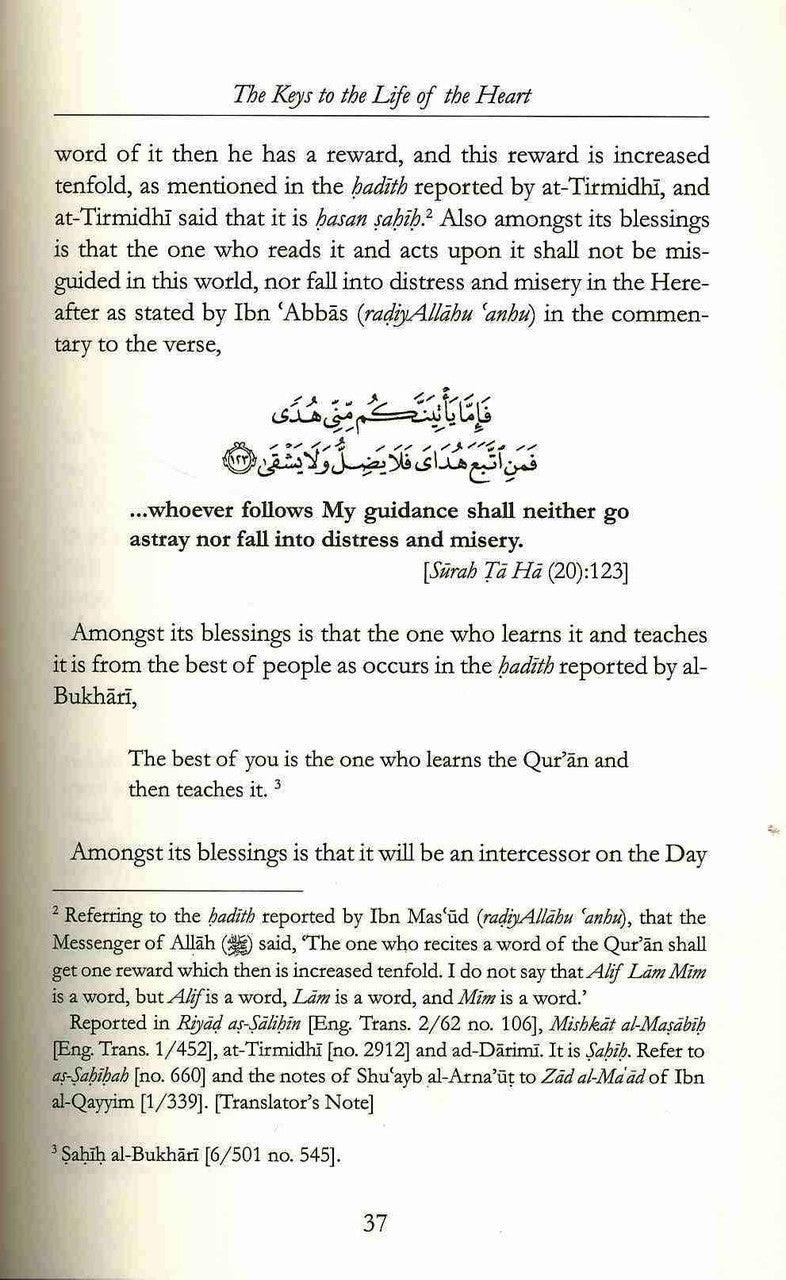 The Keys to the Life of the Heart
word of it then he has a reward, and this reward is increased
tenfold, as mentioned in the ḥadīth reported by at-Tirmidhī, and
at-Tirmidhī said that it is ḥasan ṣaḥīḥ.² Also amongst its blessings
is that the one who reads it and acts upon it shall not be mis-
guided in this world, nor fall into distress and misery in the Here-
after as stated by Ibn ‘Abbās (raḍiyAllāhu ‘anhu) in the commen-
tary to the verse,
فَإِمَّا يَأْتِيَنَّكُم مِّنِّي هُدًى
فَمَنِ ٱتَّبَعَ هُدَاىَ فَلَا يَضِلُّ وَلَا يَشْقَىٰ ١٢٣
...whoever follows My guidance shall neither go
astray nor fall into distress and misery.
[Sūrah Ṭā Hā (20):123]
Amongst its blessings is that the one who learns it and teaches
it is from the best of people as occurs in the ḥadīth reported by al-
Bukhārī,
The best of you is the one who learns the Qur’ān and
then teaches it. ³
Amongst its blessings is that it will be an intercessor on the Day
² Referring to the ḥadīth reported by Ibn Mas‘ūd (raḍiyAllāhu ‘anhu), that the
Messenger of Allāh (ﷺ) said, ‘The one who recites a word of the Qur’ān shall
get one reward which then is increased tenfold. I do not say that Alif Lām Mīm
is a word, but Alif is a word, Lām is a word, and Mīm is a word.’
Reported in Riyāḍ aṣ-Ṣāliḥīn [Eng. Trans. 2/62 no. 106], Mishkāt al-Maṣābīḥ
[Eng. Trans. 1/452], at-Tirmidhī [no. 2912] and ad-Dārimī. It is Ṣaḥīḥ. Refer to
aṣ-Ṣaḥīḥah [no. 660] and the notes of Shu‘ayb al-Arna’ūṭ to Zād al-Ma‘ād of Ibn
al-Qayyim [1/339]. [Translator’s Note]
³ Ṣaḥīḥ al-Bukhārī [6/501 no. 545].
37